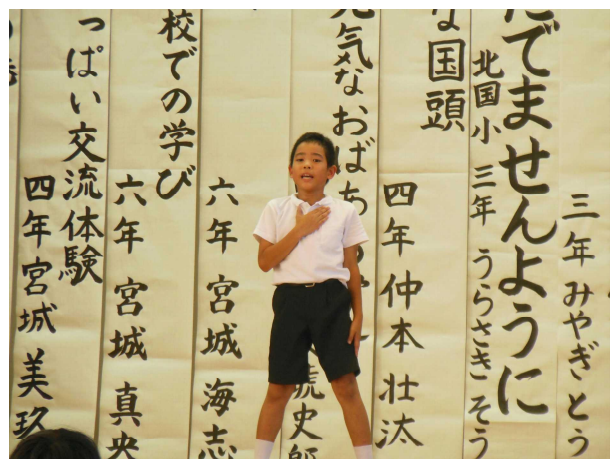 三年 みやぎ とう
だでませんように
北国小 三年 うらさき そう
な国頭
四年 仲本 壮汰
元気なおばあちゃ
琥史郎
六年 宮城 海志
校での学び
六年 宮城 真央
っぱい交流体験
四年 宮城 美玖